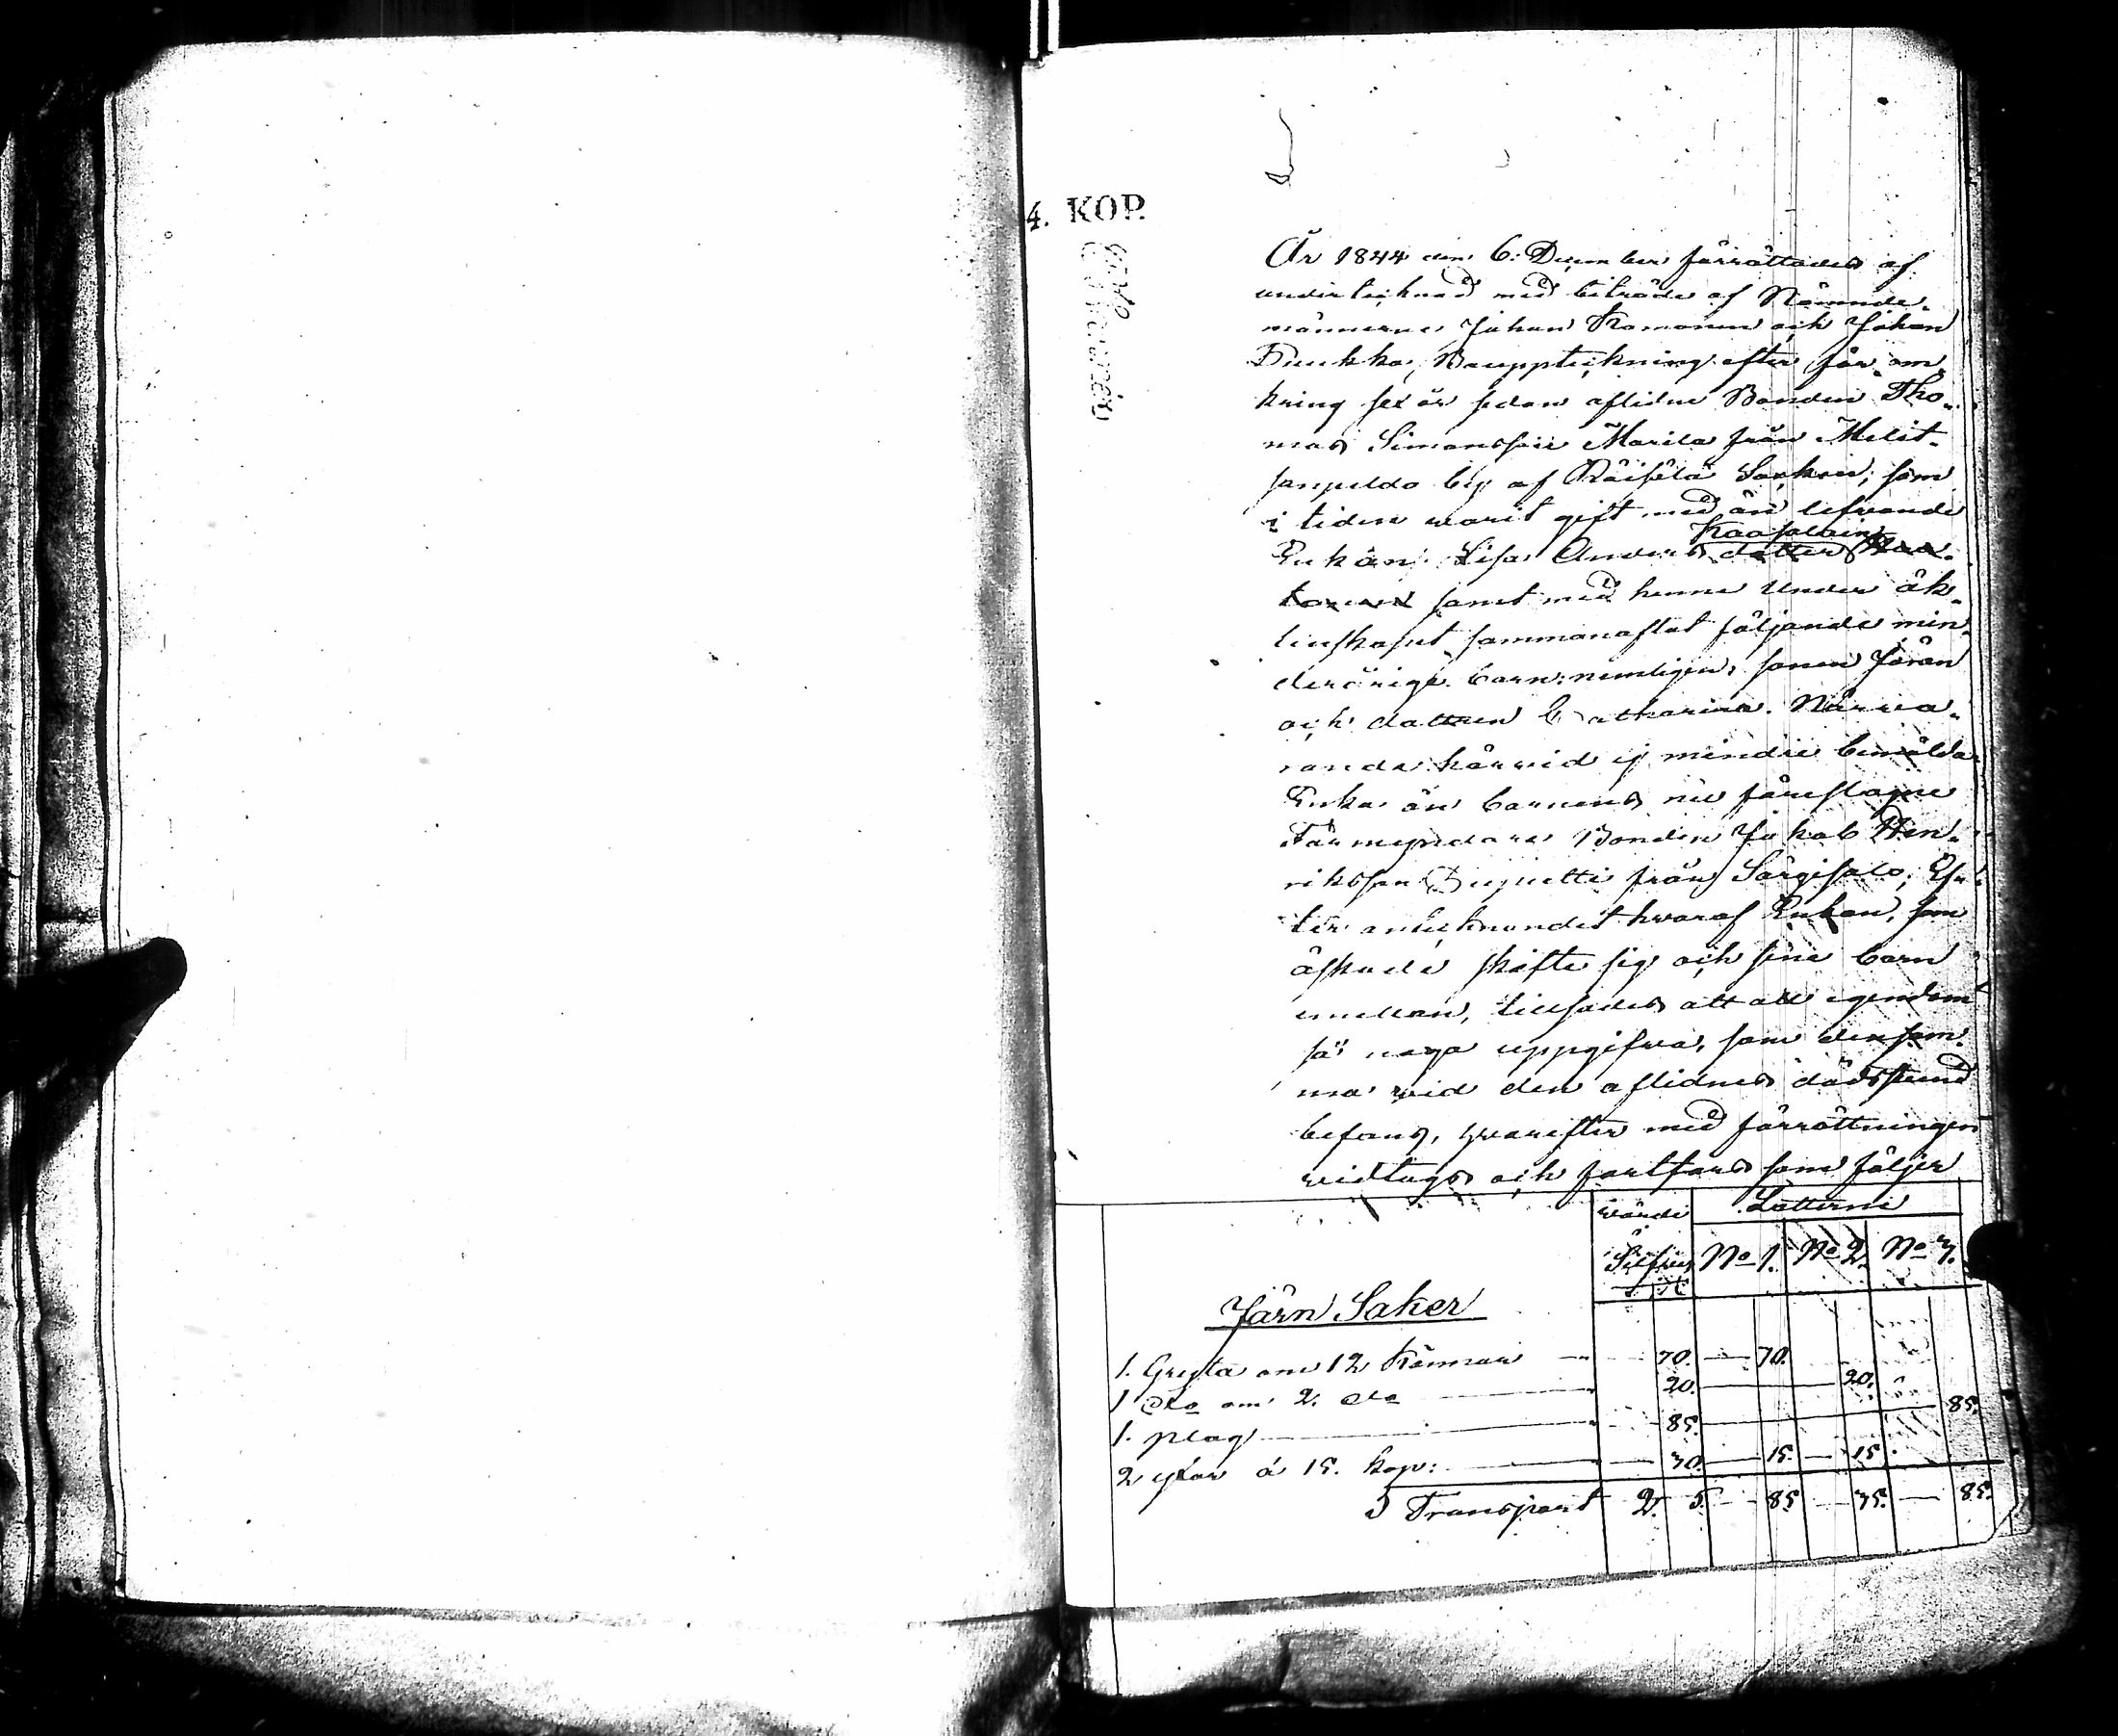 4. KOP.
År 1844 den 6: December förrättades af
undertecknad med biträde af Nämnde-
männerne Johan Romanen och Johan
Puukka, Bouppteckning efter för om-
kring sex år sedan aflidne Bonden Tho-
mas Simonsson Marila från
by af Räisälä Socken, som
i tiden warit gift med än lefvande
Enkan Lisa Anders dotter
samt med henne under äk-
tenskapet sammanaflat följande min-
deråriga barn: nemligen, sonen Jöran
och dottren Catharina. Närva-
rande härvid ej mindre bemälda
Enka än barnens nu föreslagne
Förmyndare Bonden Jakob Hen-
riksson från Särgisalo; Ef-
ter antecknandet hwaraf Enkan, som
äskade skifte sig och sine barn
emellan, tillsades att all egendom
så noga uppgifwa, som densam-
ma wid den aflidnes dödsstund
befans, hwarefter med förrättningen
widtogs och fortfors som följer
Wärde
Lotterne
Silfwer
No 1. No 2. No 3.
Järn Saker
1. Gryta om 12 Kannor 70. 70.
1 Do om 2. do 20. 20.
1. plog 85. 85.
2 yxor á 15. kop: 30. 15. 15.
Transport 2. 5. 85. 35. 85.